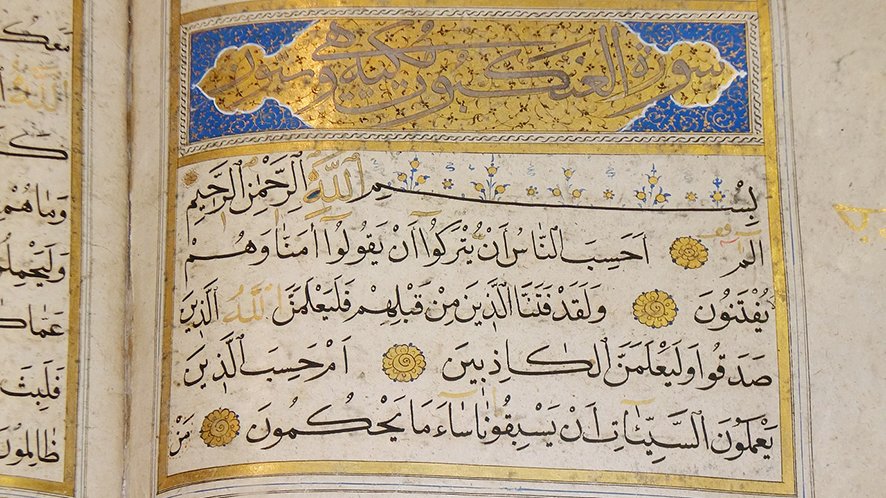 سورة العنكبوت مكية وهي ستون
بِسْمِ اللَّهِ الرَّحْمٰنِ الرَّحِيمِ
الم اَحَسِبَ النَّاسُ اَنْ يُتْرَكُوا اَنْ يَقُولُوا اٰمَنَّا وَهُمْ
يُفْتَنُونَ وَلَقَدْ فَتَنَّا الَّذِينَ مِنْ قَبْلِهِمْ فَلَيَعْلَمَنَّ اللَّهُ الَّذِينَ
صَدَقُوا وَلَيَعْلَمَنَّ الْكَاذِبِينَ اَمْ حَسِبَ الَّذِينَ
يَعْمَلُونَ السَّيِّـَٔاتِ اَنْ يَسْبِقُونَا سَاءَ مَا يَحْكُمُونَ مَنْ
اللَّهُ
وَمَا هُمْ
فَلَبِثَ
ظَالِمُونَ